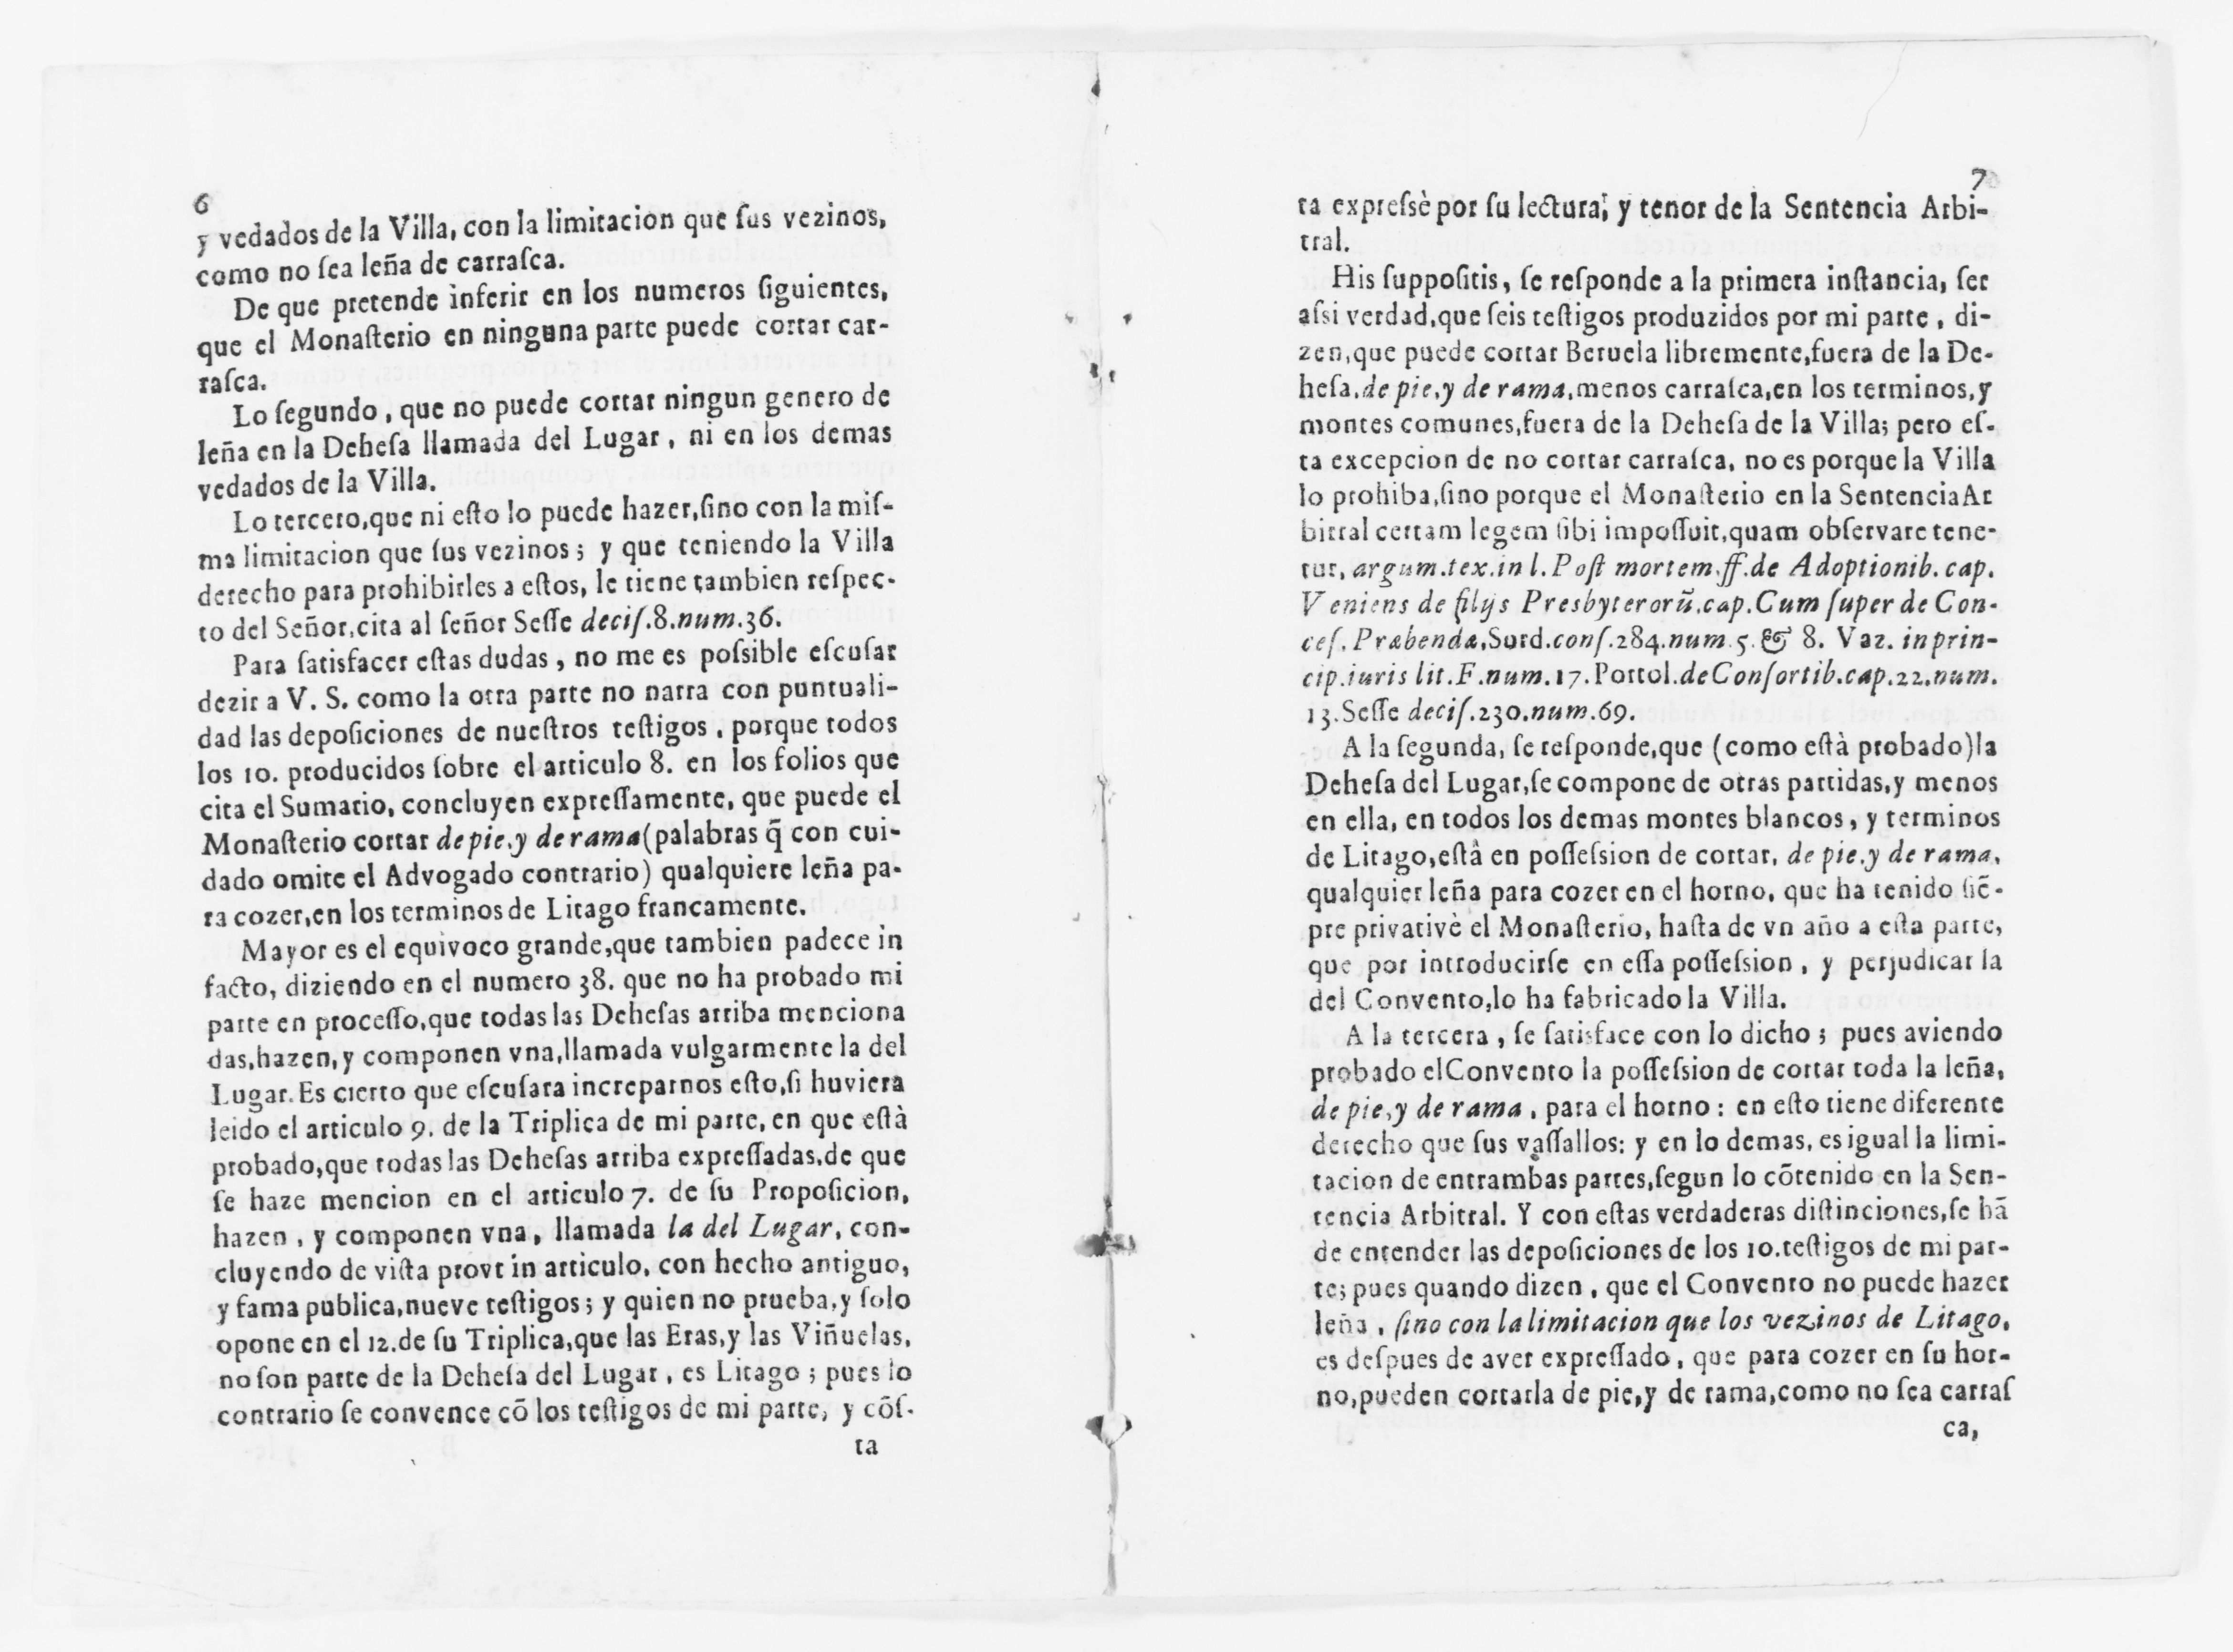 6
y vedados de la Villa, con la limitacion que ſus vezinos,
como no ſea leña de carraſca.
De que pretende inferir en los numeros ſiguientes,
que el Monaſterio en ninguna parte puede cortar car-
raſca.
Lo ſegundo, que no puede cortar ningun genero de
leña en la Deheſa llamada del Lugar, ni en los demas
vedados de la Villa.
Lo tercero, que ni eſto lo puede hazer, ſino con la miſ-
ma limitacion que ſus vezinos; y que teniendo la Villa
derecho para prohibirles a eſtos, le tiene tambien reſpec-
to del Señor, cita al ſeñor Seſſe deciſ.8.num.36.
Para ſatisfacer eſtas dudas, no me es poſsible eſcuſar
dezir a V. S. como la otra parte no narra con puntuali-
dad las depoſiciones de nueſtros teſtigos, porque todos
los 10. producidos ſobre el articulo 8. en los folios que
cita el Sumario, concluyen expreſſamente, que puede el
Monaſterio cortar de pie, y de rama (palabras q̃ con cui-
dado omite el Advogado contrario) qualquiere leña pa-
ra cozer, en los terminos de Litago francamente.
Mayor es el equivoco grande, que tambien padece in
facto, diziendo en el numero 38. que no ha probado mi
parte en proceſſo, que todas las Deheſas arriba menciona
das, hazen, y componen vna, llamada vulgarmente la del
Lugar. Es cierto que eſcuſara increparnos eſto, ſi huviera
leido el articulo 9. de la Triplica de mi parte, en que eſtà
probado, que todas las Deheſas arriba expreſſadas, de que
ſe haze mencion en el articulo 7. de ſu Propoſicion,
hazen, y componen vna, llamada la del Lugar, con-
cluyendo de viſta provt in articulo, con hecho antiguo,
y fama publica, nueve teſtigos; y quien no prueba, y ſolo
opone en el 12. de ſu Triplica, que las Eras, y las Viñuelas,
no ſon parte de la Deheſa del Lugar, es Litago; pues lo
contrario ſe convence cõ los teſtigos de mi parte, y cõſ-
ta
7
ta expreſsè por ſu lectura, y tenor de la Sentencia Arbi-
tral.
His ſuppoſitis, ſe reſponde a la primera inſtancia, ſer
aſsi verdad, que ſeis teſtigos produzidos por mi parte, di-
zen, que puede cortar Beruela libremente, fuera de la De-
heſa, de pie, y de rama, menos carraſca, en los terminos, y
montes comunes, fuera de la Deheſa de la Villa; pero eſ-
ta excepcion de no cortar carraſca, no es porque la Villa
lo prohiba, ſino porque el Monaſterio en la Sentencia Ar
bitral certam legem ſibi impoſſuit, quam obſervare tene-
tur, argum.tex.in l.Poſt mortem.ff.de Adoptionib. cap.
Veniens de filijs Presbyterorũ.cap.Cum ſuper de Con-
ceſ. Præbendæ, Surd.conſ.284.num.5.& 8. Vaz. in prin-
cip.iuris lit.F.num.17.Portol.de Conſortib.cap.22.num.
13.Seſſe deciſ.230.num.69.
A la ſegunda, ſe reſponde, que (como eſtà probado) la
Deheſa del Lugar, ſe compone de otras partidas, y menos
en ella, en todos los demas montes blancos, y terminos
de Litago, eſtà en poſſeſsion de cortar, de pie, y de rama,
qualquier leña para cozer en el horno, que ha tenido ſiẽ-
pre privativè el Monaſterio, haſta de vn año a eſta parte,
que por introducirſe en eſſa poſſeſsion, y perjudicar la
del Convento, lo ha fabricado la Villa.
A la tercera, ſe ſatisface con lo dicho; pues aviendo
probado el Convento la poſſeſsion de cortar toda la leña,
de pie, y de rama, para el horno: en eſto tiene diferente
derecho que ſus vaſſallos: y en lo demas, es igual la limi-
tacion de entrambas partes, ſegun lo cõtenido en la Sen-
tencia Arbitral. Y con eſtas verdaderas diſtinciones, ſe hã
de entender las depoſiciones de los 10. teſtigos de mi par-
te; pues quando dizen, que el Convento no puede hazer
leña, ſino con la limitacion que los vezinos de Litago,
es deſpues de aver expreſſado, que para cozer en ſu hor-
no, pueden cortarla de pie, y de rama, como no ſea carraſ
ca,